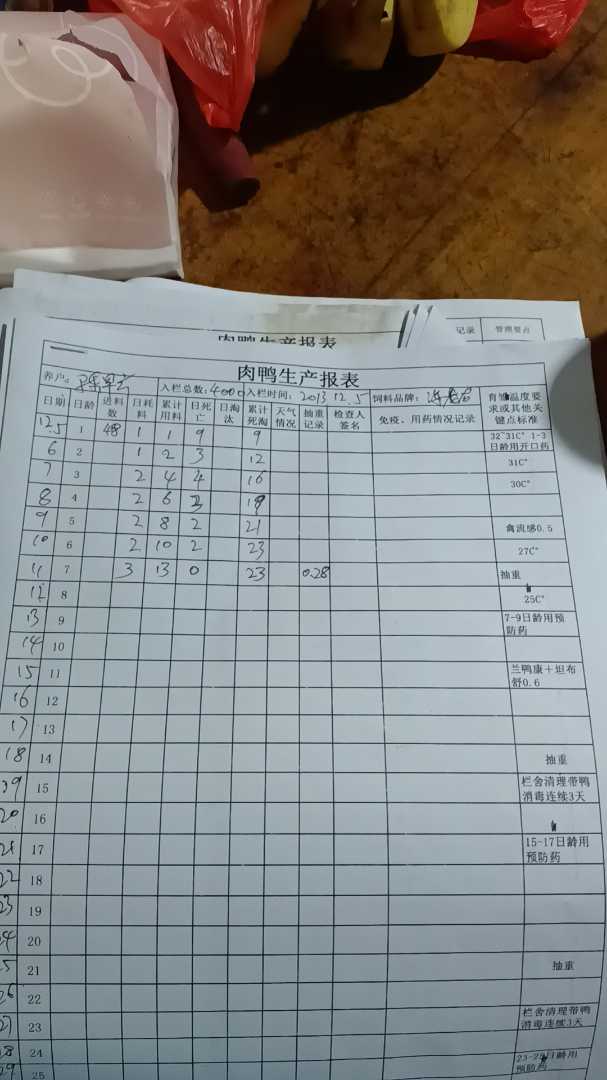 肉鸭生产报表
记录 管理要点
肉鸭生产报表
养户: 入栏总数:4000 入栏时间:2013 12.5 饲料品牌: 育雏温度要求或其他关键点标准
日期 日龄 进料数 日耗料 累计用料 日死亡 日淘汰 累计死淘 天气情况 抽重记录 检查人签名 免疫、用药情况记录
12.5 1 48 1 1 9 9 32~31C° 1-3日龄用开口药
6 2 1 2 3 12 31C°
7 3 2 4 4 16 30C°
8 4 2 6 19
9 5 2 8 2 21 禽流感0.5
10 6 2 10 2 23 27C°
11 7 3 13 0 23 0.28 抽重
12 8 25C°
13 9 7-9日龄用预防药
14 10
15 11 兰鸭康+坦布舒0.6
16 12
17 13
18 14 抽重
19 15 栏舍清理带鸭消毒连续3天
20 16
21 17 15-17日龄用预防药
22 18
23 19
24 20
25 21 抽重
26 22
27 23 栏舍清理带鸭消毒连续3天
28 24 23-25日龄用预防药
29 25